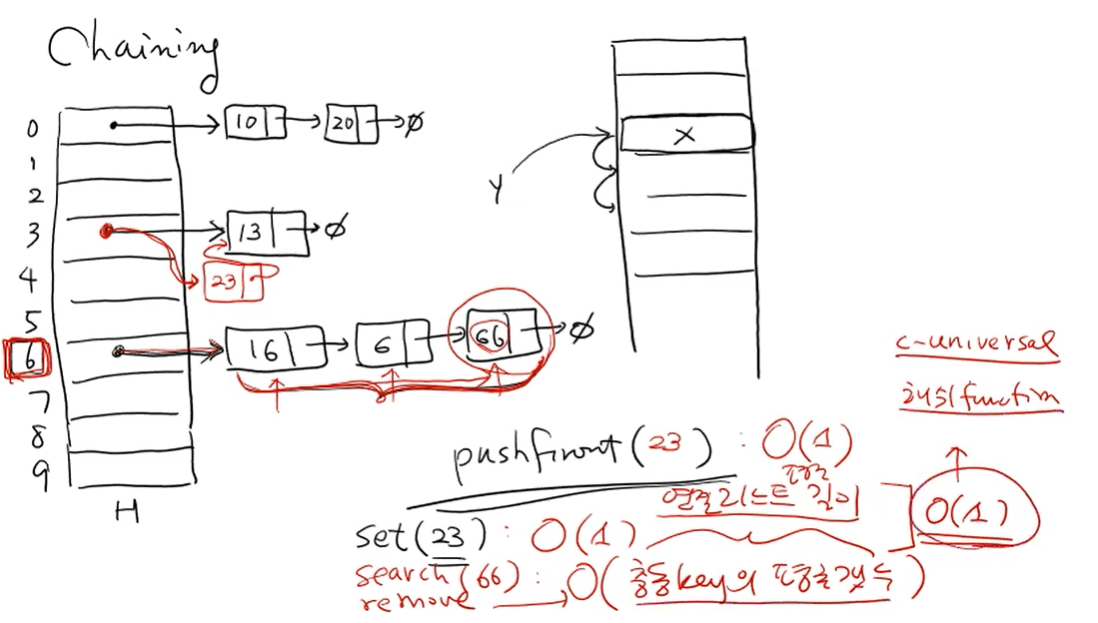 Chaining
0 10 20 ∅
1
2
3 13 ∅
23
4
5
6 16 6 66 ∅
7
8
9
H
X
Y
c-universal
해시 function
pushfront(23) : O(1)
평균
연결리스트 길이
set(23) : O(1)
O(1)
search(66) : O(충돌key의 평균갯수)
remove